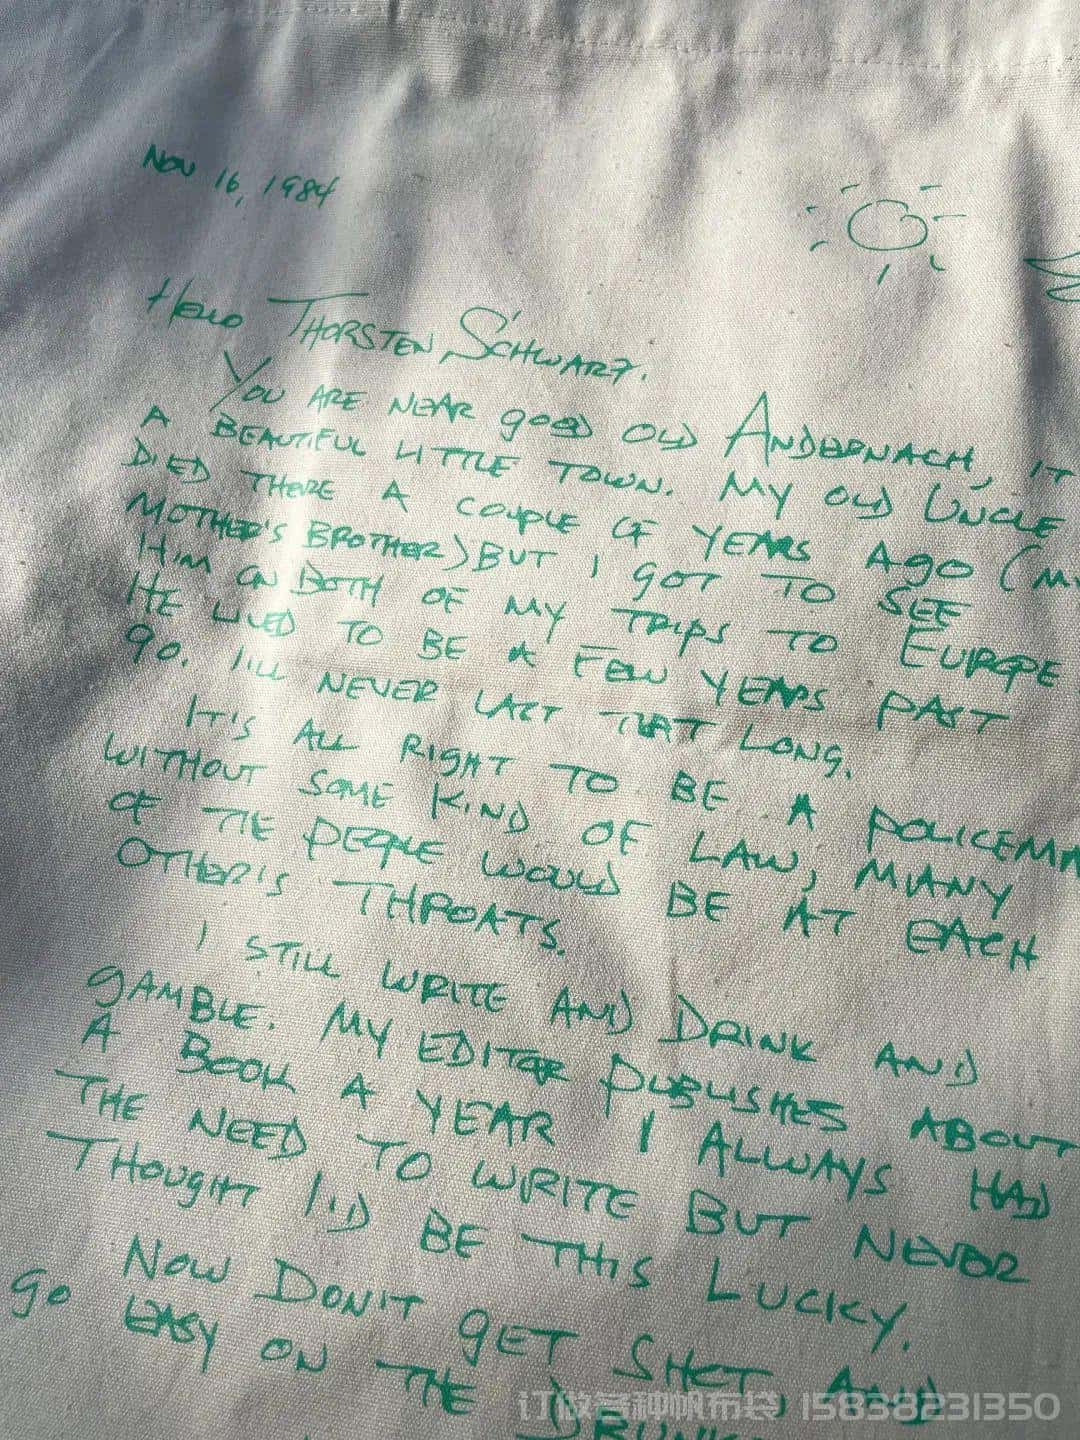 NOV 16, 1984
HELLO THORSTEN SCHWARZ.
YOU ARE NEAR GOOD OLD ANDERNACH, IT
A BEAUTIFUL LITTLE TOWN. MY OLD UNCLE
DIED THERE A COUPLE OF YEARS AGO (MY
MOTHER'S BROTHER) BUT I GOT TO SEE
HIM ON BOTH OF MY TRIPS TO EUROPE
HE LIVED TO BE A FEW YEARS PAST
90. I'LL NEVER LAST THAT LONG.
IT'S ALL RIGHT TO BE A POLICEMA
WITHOUT SOME KIND OF LAW, MANY
OF THE PEOPLE WOULD BE AT EACH
OTHER'S THROATS.
I STILL WRITE AND DRINK AND
GAMBLE. MY EDITOR PUBLISHES ABOUT
A BOOK A YEAR I ALWAYS HAD
THE NEED TO WRITE BUT NEVER
THOUGHT I'D BE THIS LUCKY.
NOW DON'T GET SHOT, AND
GO EASY ON THE DRUNK
订做各种帆布袋 15838231350